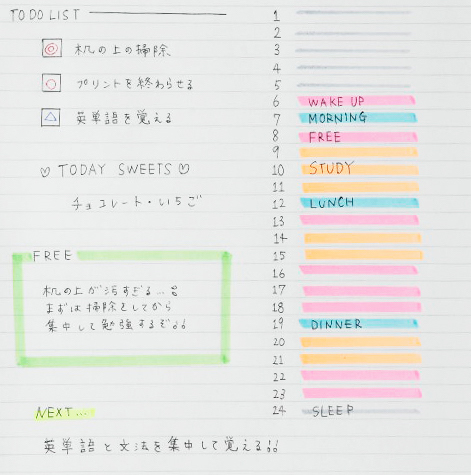 TO DO LIST
机の上の掃除
プリントを終わらせる
英単語を覚える
♡ TODAY SWEETS ♡
チョコレート・いちご
FREE
机の上が汚すぎる...。
まずは掃除をしてから
集中して勉強するぞ!!
NEXT...
英単語と文法を集中して覚える!!
1
2
3
4
5
6 WAKE UP
7 MORNING
8 FREE
9
10 STUDY
11
12 LUNCH
13
14
15
16
17
18
19 DINNER
20
21
22
23
24 SLEEP